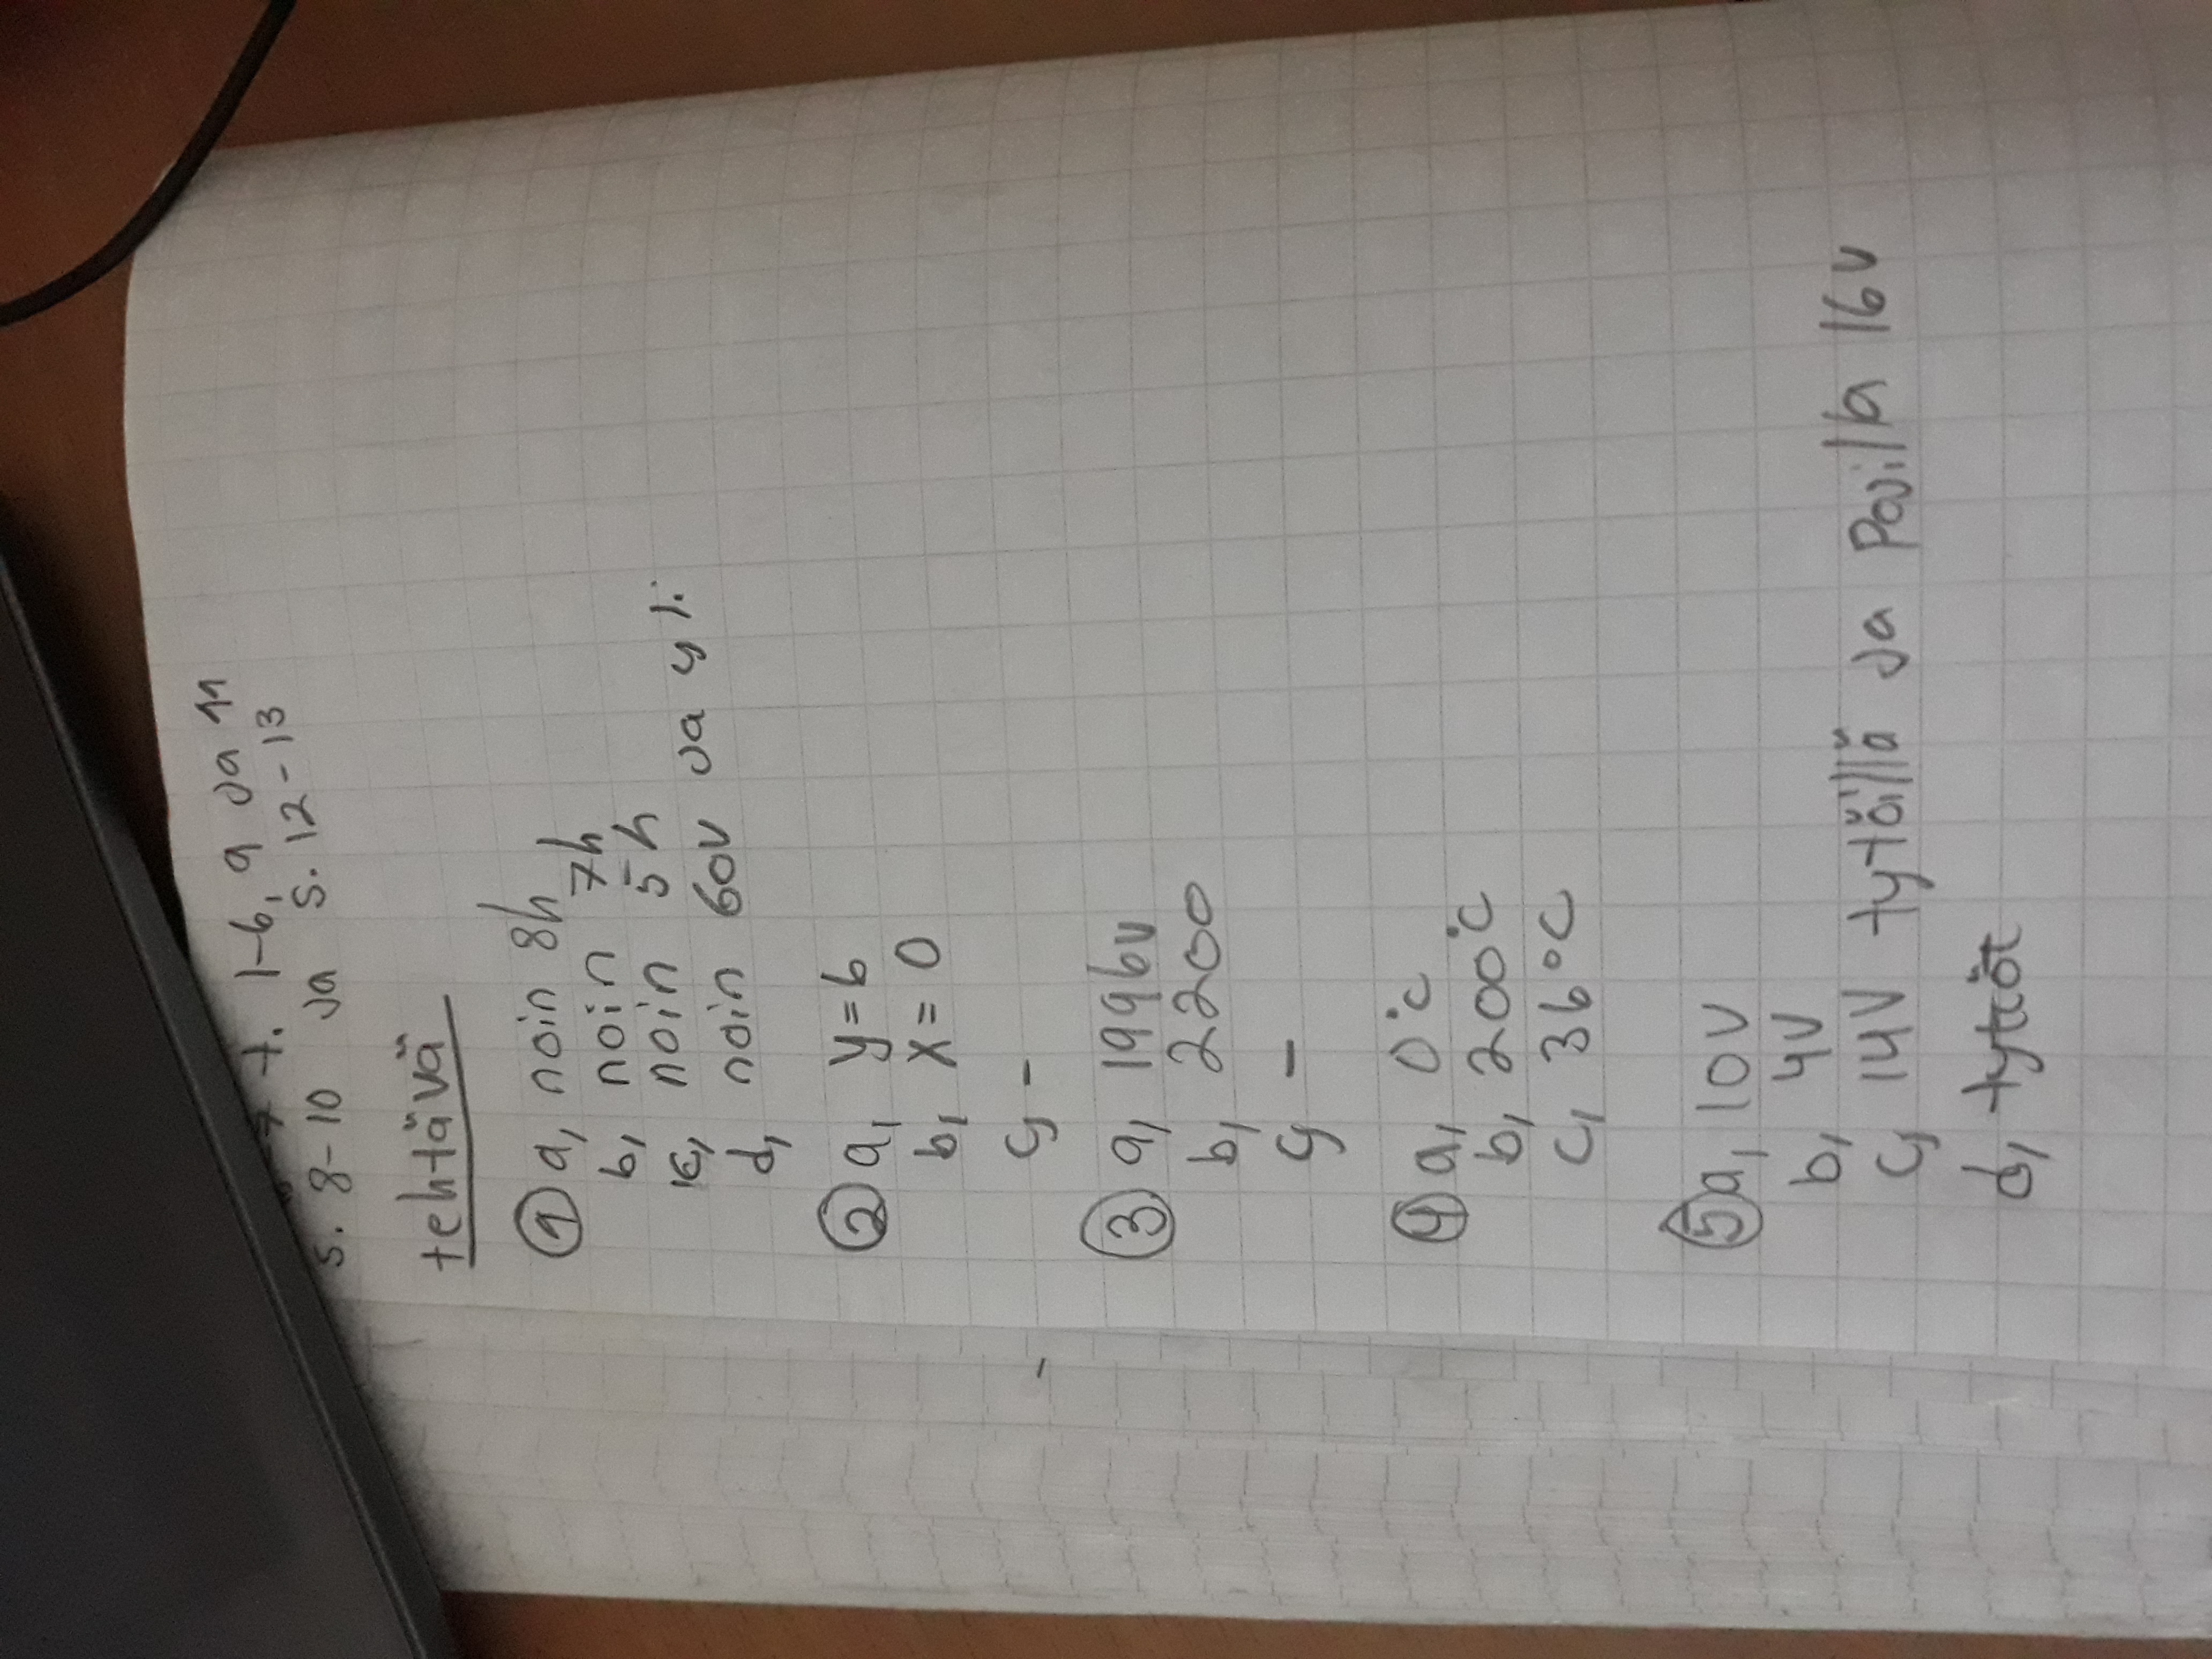 t. 1-6, 9 ja 11
s. 8-10 ja s. 12-13
tehtävä
1 a, noin 8h
b, noin 7h
c, noin 5h
d, noin 60v ja yli
2 a, y=6
b, x=0
c, -
3 a, 1996v
b, 2200
c, -
4 a, 0°c
b, 200°c
c, 36°C
5 a, 10v
b, 4v
c, 14v tytöillä ja Pojilla 16v
d, tytöt